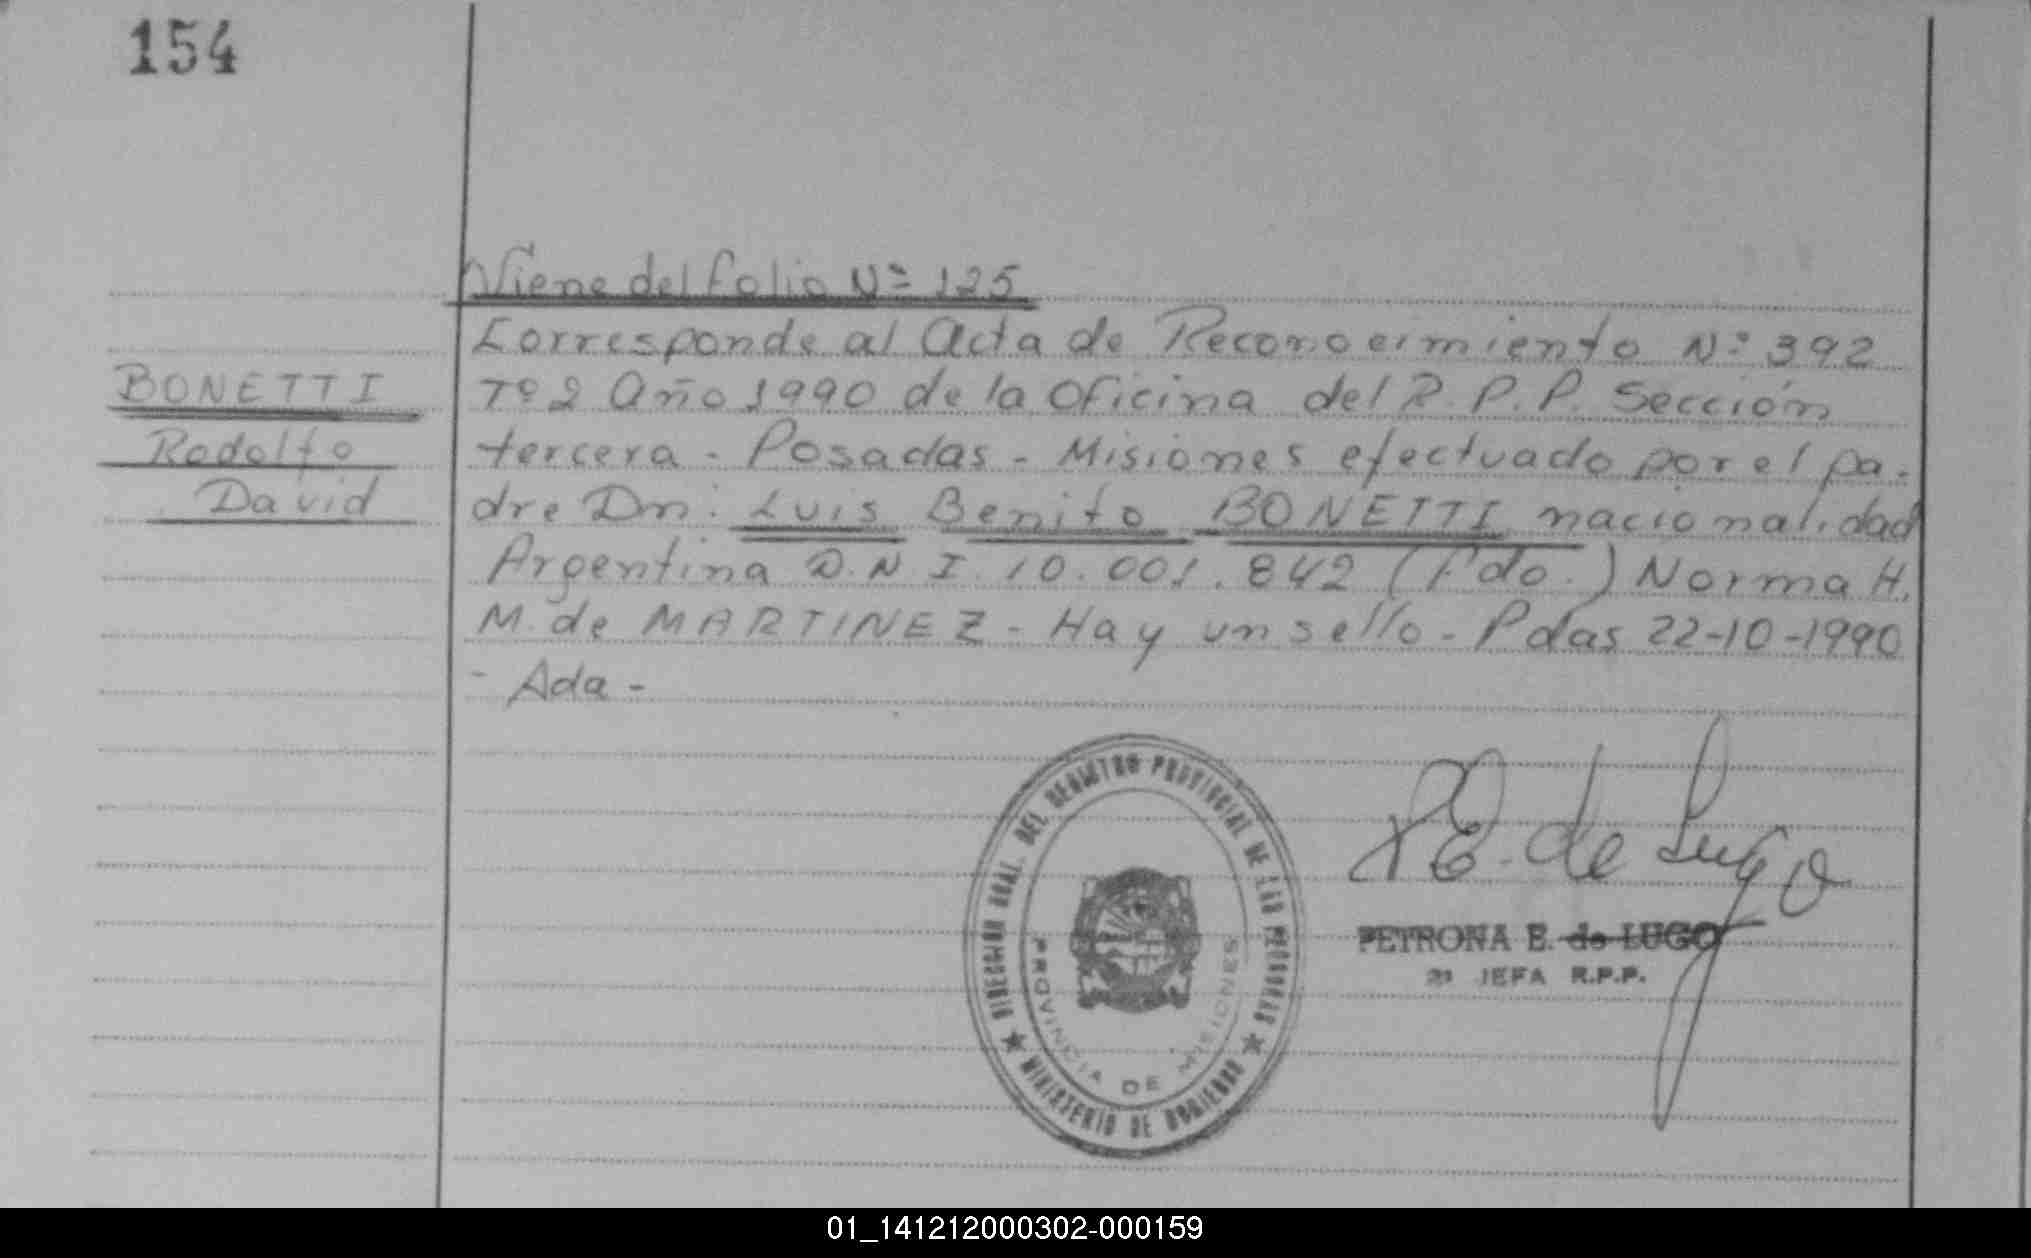 154
Viene del folio Nº 125
Corresponde al Acta de Reconocimiento Nº 392
BONETTI
Tº 2 Año 1990 de la Oficina del R.P.P. Sección
Rodolfo
tercera - Posadas - Misiones efectuado por el pa-
David
dre Dn: Luis Benito BONETTI nacionalidad
Argentina D.N.I. 10.001.842 (Fdo.) Norma H.
M. de MARTINEZ - Hay un sello - Pdas 22-10-1990
- Ada -
DIRECCION GRAL. DEL REGISTRO PROVINCIAL DE LAS PERSONAS
PROVINCIA DE MISIONES
MINISTERIO DE GOBIERNO
P E. de Lugo
PETRONA E. de LUGO
2ª JEFA R.P.P.
01_141212000302-000159